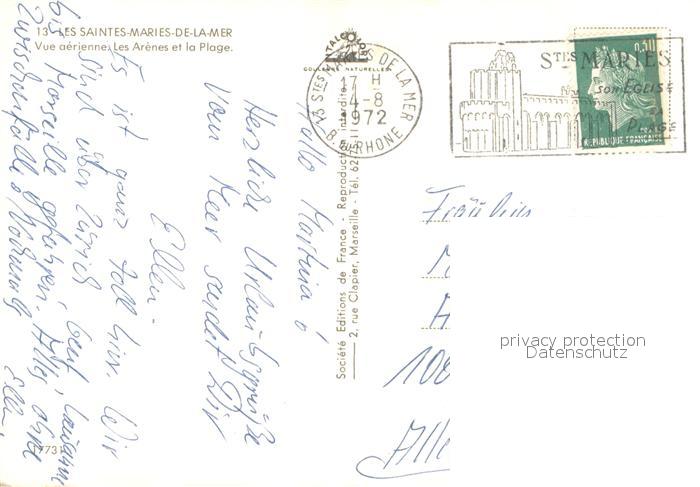 13 - LES SAINTES-MARIES-DE-LA-MER
Vue aérienne. Les Arènes et la Plage.
COULEURS NATURELLES
13 STES MARIES DE LA MER
17 H
4-8
1972
B. DU RHONE
STES MARIES
SON EGLISE
SA
PLAGE
0,30
REPUBLIQUE FRANÇAISE
Hallo Martina!
Herzliche Urlaubsgrüße
vom Meer sendet Dir
Ellen -
Es ist ganz toll hier. Wir
sind über Zürich, Genf, Lausanne
bis Marseille gefahren. Alles ohne
Zwischenfälle
Ellen.
Société Editions de France - Reproduction interdite
2, rue Clapier, Marseille - Tél. 62
Fräulein
100
Alle
privacy protection
Datenschutz